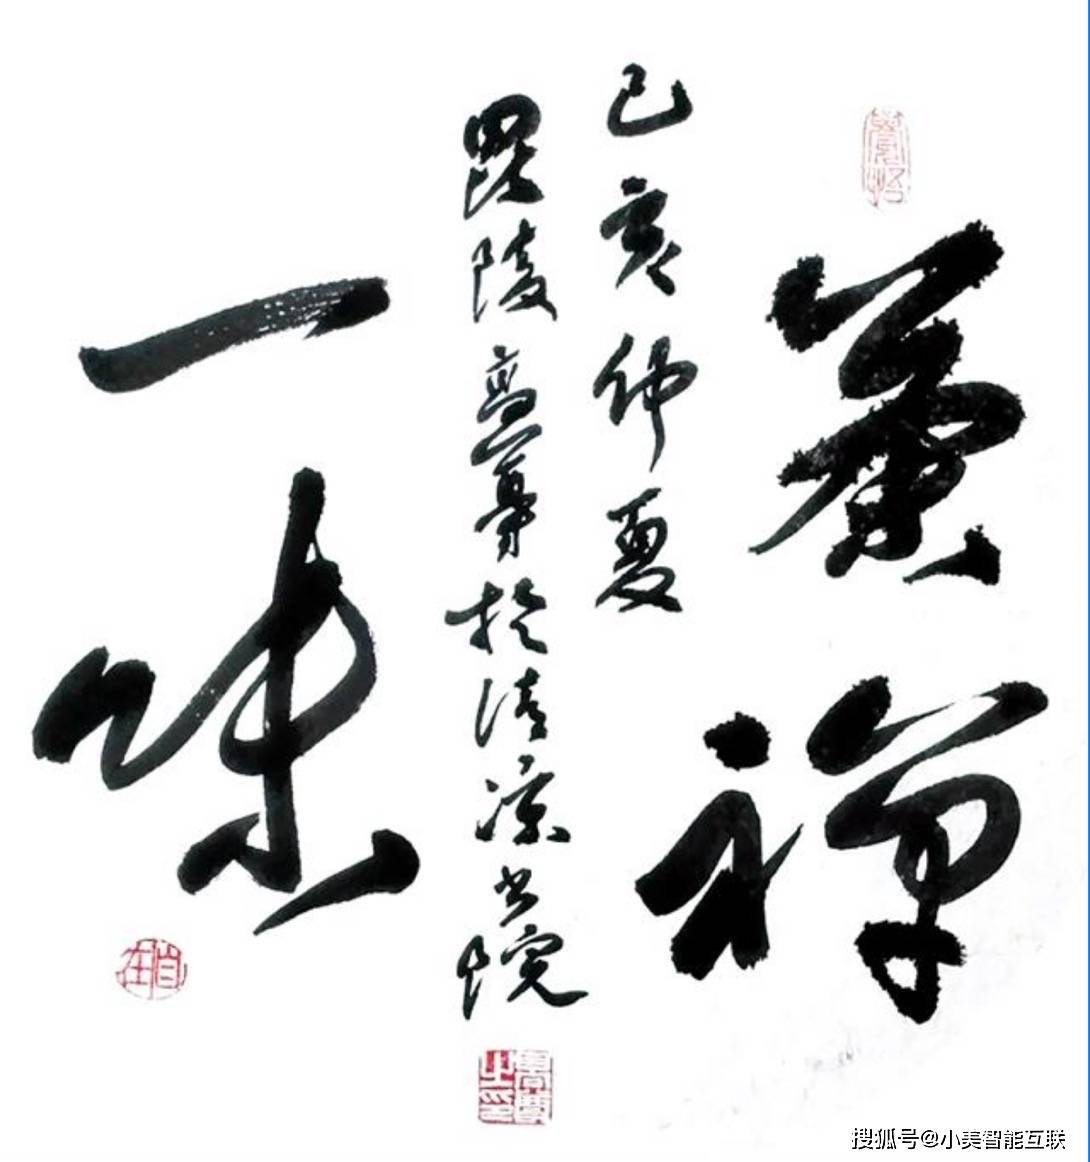 覺悟
茶禅
己亥仲夏
毘陵高於清凉书院
一味
自在
搜狐号@小美智能互联